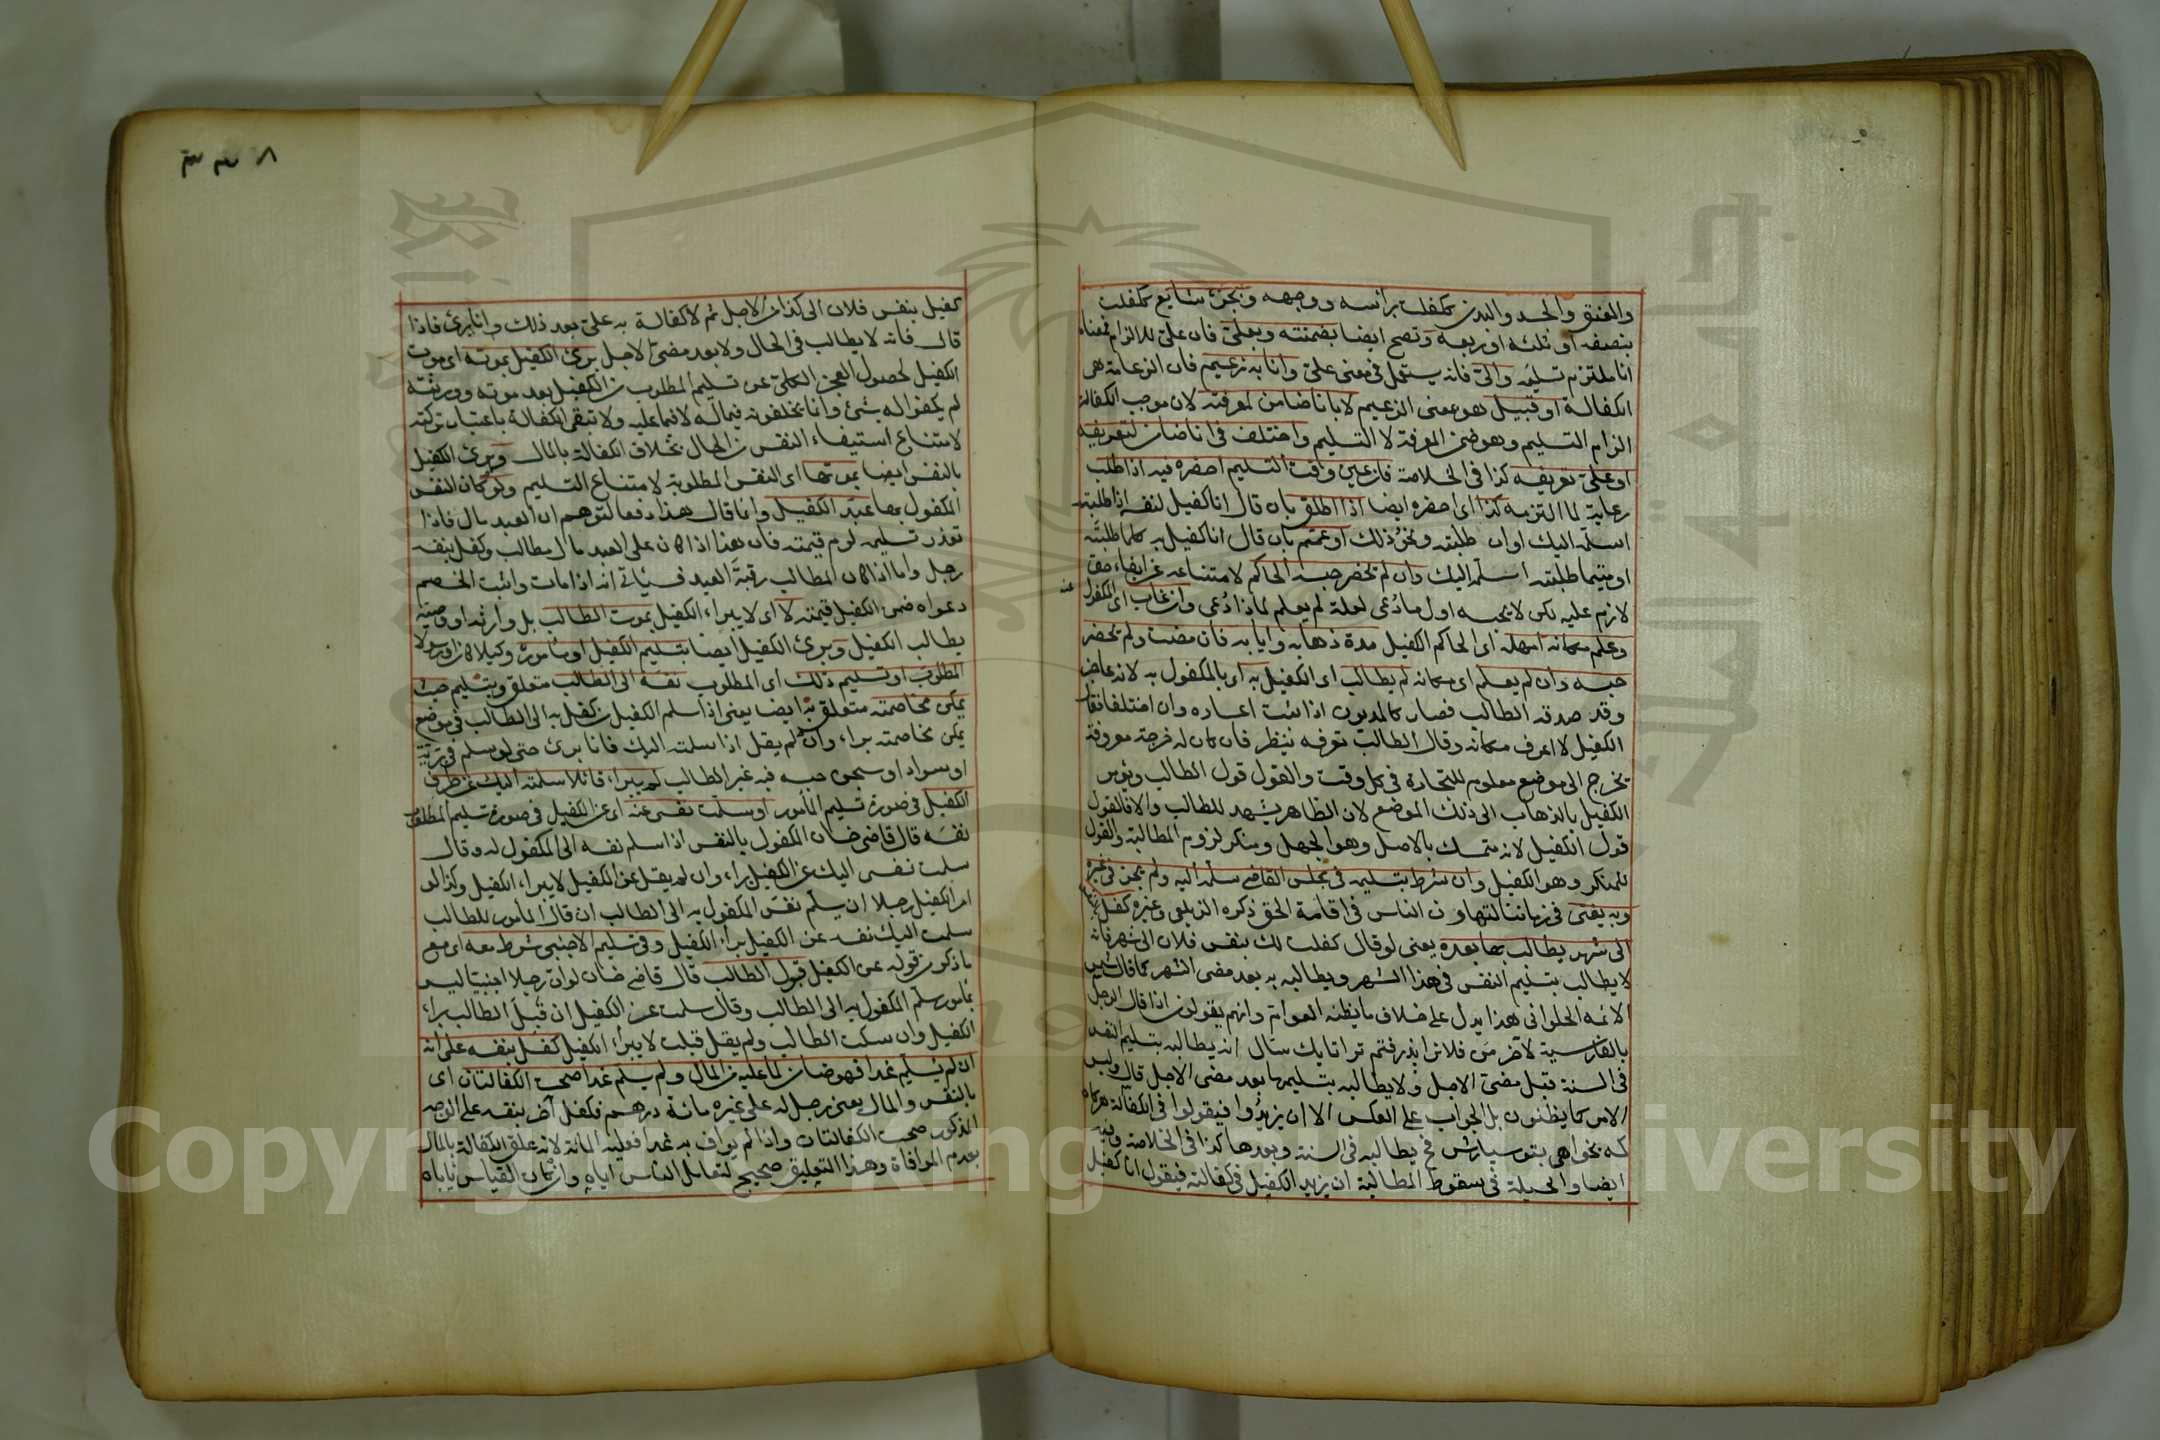 والعنق والجسد والبدن ككفلت برأسه ووجهه وبجزء شايع ككفلت
بنصفه او ثلثه او ربعه وتصح ايضا بضمنته وبعليّ فان عليّ للالزام فمعناه
انا ملتزم تسليمه واليّ فانه يستعمل في معنى عليّ وانا به زعيم فان الزعامة هي
الكفالة او قبيل هو بمعنى الزعيم لا بانا ضامن لمعرفته لان موجب الكفالة
الزام التسليم وهو ضمن المعرفة لا التسليم واختلف في انا ضامن لتعريفه
او عليّ تعريفه كذا في الخلاصة فان عين وقت التسليم احضره فيه اذا طلب
رعاية لما التزمه كذا اى احضره ايضا اذا اطلق بان قال انا كفيل لنفسه اذا طلبته
اسلمه اليك او ان طلبته ونحو ذلك او عمّم بان قال انا كفيل به كلما طلبته
او متيما طلبته اسلمه اليك وان لم يحضر حبسه الحاكم لامتناعه عن ايفاء حق
لازم عليه لكن لا يحبسه اول ما دُعى لعله لم يعلم لماذا دُعى وان غاب اى المكفول عنه
وعلم مكانه امهله اى الحاكم الكفيل مدة ذهابه وايابه فان مضت ولم يحضر
حبسه وان لم يعلم اى مكانه لم يطالب اى الكفيل به اى بالمكفول به لانه عاجز
وقد صدقه الطالب فصار كالمديون اذا ثبت اعساره وان اختلفا فقال
الكفيل لا اعرف مكانه وقال الطالب تعرفه ينظر فان كان له خرجة معروفة
يخرج الى موضع معلوم للتجارة في كل وقت والقول قول الطالب ويؤمر
الكفيل بالذهاب الى ذلك الموضع لان الظاهر يشهد للطالب والا فالقول
قول الكفيل لانه متمسك بالاصل وهو الجهل ومنكر لزوم المطالبة والقول
للمنكر وهو الكفيل وان شرط تسليمه في مجلس القاضي سلمه اليه ولم يجز في غيره
وبه يفتى في زماننا لتهاون الناس في اقامة الحق ذكره الزيلعى وغيره كفل بنفس
الى شهر يطالب بها بعده يعنى لو قال كفلت لك بنفس فلان الى شهر فانه
لا يطالب بتسليم النفس في هذا الشهر ويطالبه به بعد مضى الشهر كما قال شمس
الائمه الحلوانى هذا يدل على خلاف ما يظنه العوام وانهم يقولون اذا قال الرجل
بالفارسية لآخر من فلانرا پذرفتم ترا تا يك سال انه يطالبه بتسليم النفس
في السنة قبل مضىّ الاجل ولا يطالبه بتسليمها بعد مضى الاجل قال وليس
الامر كما يظنون بل الجواب على العكس الا ان يزيدُوا فيقولوا في الكفالة هركاه
كه بخواهى بتو سپارمش فح يطالبه في السنة وبعدها كذا في الخلاصة وفيه
ايضا والحيلة في سقوط المطالبة ان يزيد الكفيل في كفالته فيقول انا كفيل
٣٣٨
كفيل بنفس فلان الى كذا من الاجل ثم لا كفالة به عليّ بعد ذلك وانا برئ فاذا
قال فانه لا يطالب في الحال ولا بعد مضىّ الاجل برئ الكفيل بموته اى موت
الكفيل لحصول العجز الكلىّ عن تسليم المطلوب من الكفيل بعد موته وورثته
لم يكفلوا له بشئ وانما يخلفونه فيما له لا فيما عليه ولا تبقى الكفالة باعتبار تركته
لامتناع استيفاء النفس من المال بخلاف الكفالة بالمال وبرئ الكفيل
بالنفس ايضا بموتها اى النفس المطلوبة لامتناع التسليم ولو كان النفس
المكفول بها عبدَ الكفيل وانما قال هذا دفعا لتوهم ان العبد مال فاذا
تعذر تسليمه لزم قيمته فان هذا اذا كان على العبد مال مطالب وكفل بنفسه
رجل واما اذا كان المطالب رقبةَ العبد فسيأتى انه اذا مات واثبت الخصم
دعواه ضمن الكفيل قيمته لا اى لا يبرأ الكفيل بموت الطالب بل وارثه او وصيّه
يطالب الكفيل وبرئ الكفيل ايضا بتسليم الكفيل او مأموره وكيلا كان او رسولا
المطلوب او تسليم ذلك اى المطلوب نفسه الى الطالب متعلق بتسليم حيث
يمكن مخاصمته متعلق به ايضا يعنى اذا سلم الكفيل من كفل به الى الطالب في موضع
يمكن مخاصمته برأ وان لم يقل اذا سلمته اليك فانا برئ حتى لو سلم في برّية
او سواد او سجن حبسه فيه غير الطالب لم يبرأ قائلا سلمته اليك عن طرف
الكفيل في صورة تسليم المأمور او سلمت نفسى عنه اى عن الكفيل في صورة تسليم المطلوب
نفسَه قال قاضى خان المكفول بالنفس اذا سلم نفسه الى المكفول له وقال
سلمت نفسى اليك عن الكفيل برأ وان لم يقل عن الكفيل لا يبرأ الكفيل وكذا لو
امر الكفيل رجلا ان يسلّم نفسَ المكفول به الى الطالب ان قال المأمور للطالب
سلمت اليك نفسه عن الكفيل برأ الكفيل وفي تسليم الاجنبى شرط معه اى مع
ما ذكر من قوله عن الكفيل قبول الطالب قال قاضى خان لو ان رجلا اجنبيّا ليس
بمأمور سلّم المكفول به الى الطالب وقال سلمت عن الكفيل ان قَبِلَ الطالب برأ
الكفيل وان سكت الطالب ولم يقل قبلت لا يبرأ الكفيل كفل بنفسه على انه
ان لم يُسلّم غدا فهو ضامن لما عليه من المال ولم يسلم غدا صحت الكفالتان اى
بالنفس والمال يعنى رجل له على غيره مائة درهم فكفل آخر بنفسه على الوجه
المذكور صحت الكفالتان واذا لم يواف به غدا فعليه المائة لانه علق الكفالة بالمال
بعدم الموافاة وهذا التعليق صحيح لتعامل الناس اياه وان كان القياس يأباه
Copyright © King Saud University